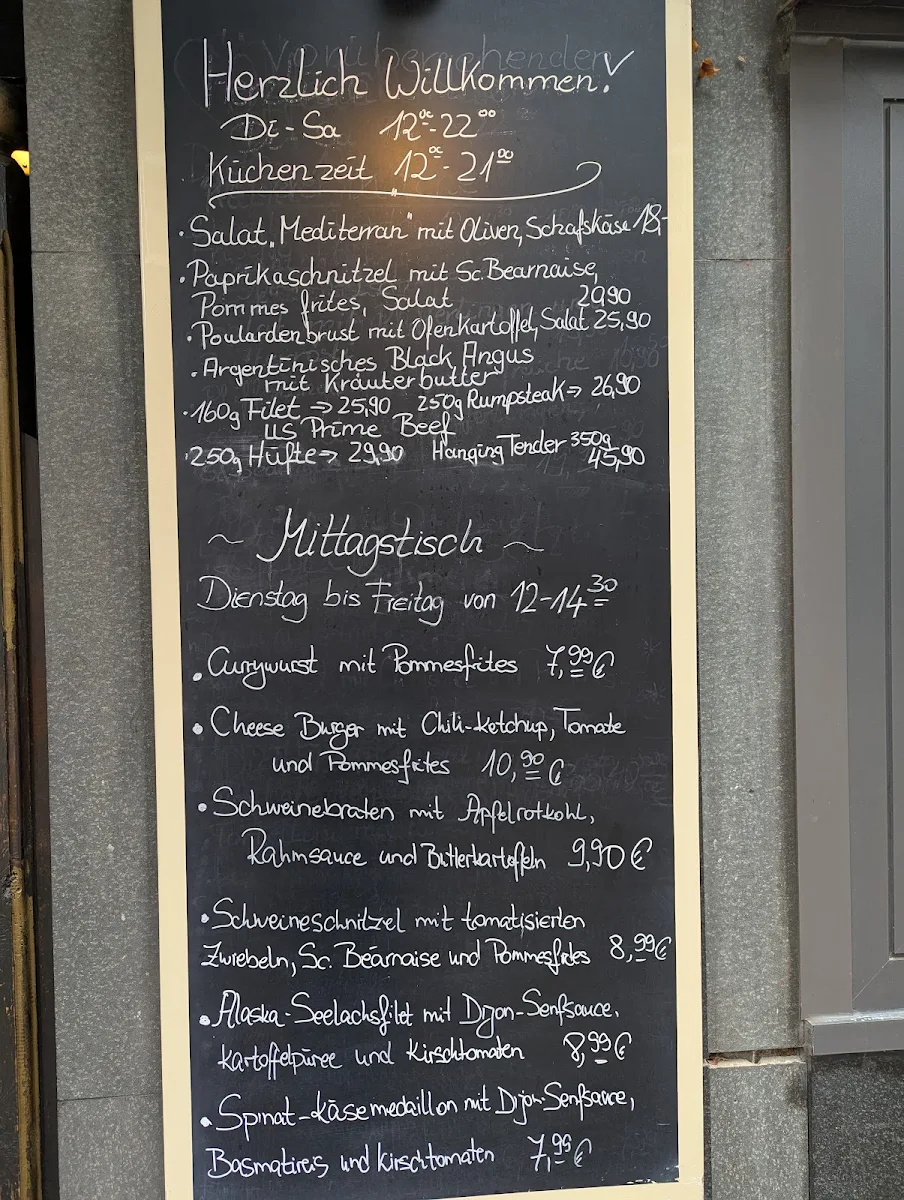 Herzlich Willkommen!
Di-Sa 12⁰⁰-22⁰⁰
Küchenzeit 12⁰⁰-21⁰⁰
• Salat „Mediterran" mit Oliven, Schafskäse 18,-
• Paprikaschnitzel mit Sc. Bearnaise,
Pommes frites, Salat 20,90
• Poulardenbrust mit Ofenkartoffel, Salat 25,90
• Argentinisches Black Angus
mit Kräuterbutter
• 160g Filet ⇒ 25,90 250g Rumpsteak ⇒ 26,90
US Prime Beef
• 250g Hüfte ⇒ 29,90 Hanging Tender 350g
45,90
~ Mittagstisch ~
Dienstag bis Freitag von 12-14³⁰
• Currywurst mit Pommesfrites 7,99€
• Cheese Burger mit Chili-Ketchup, Tomate
und Pommesfrites 10,90 €
• Schweinebraten mit Apfelrotkohl,
Rahmsauce und Butterkartoffeln 9,90€
• Schweineschnitzel mit tomatisierten
Zwiebeln, Sc. Béarnaise und Pommesfrites 8,99€
• Alaska-Seelachsfilet mit Dijon-Senfsauce,
Kartoffelpüree und Kirschtomaten 8,99€
• Spinat-Käsemedaillon mit Dijon-Senfsauce,
Basmatireis und Kirschtomaten 7,99€